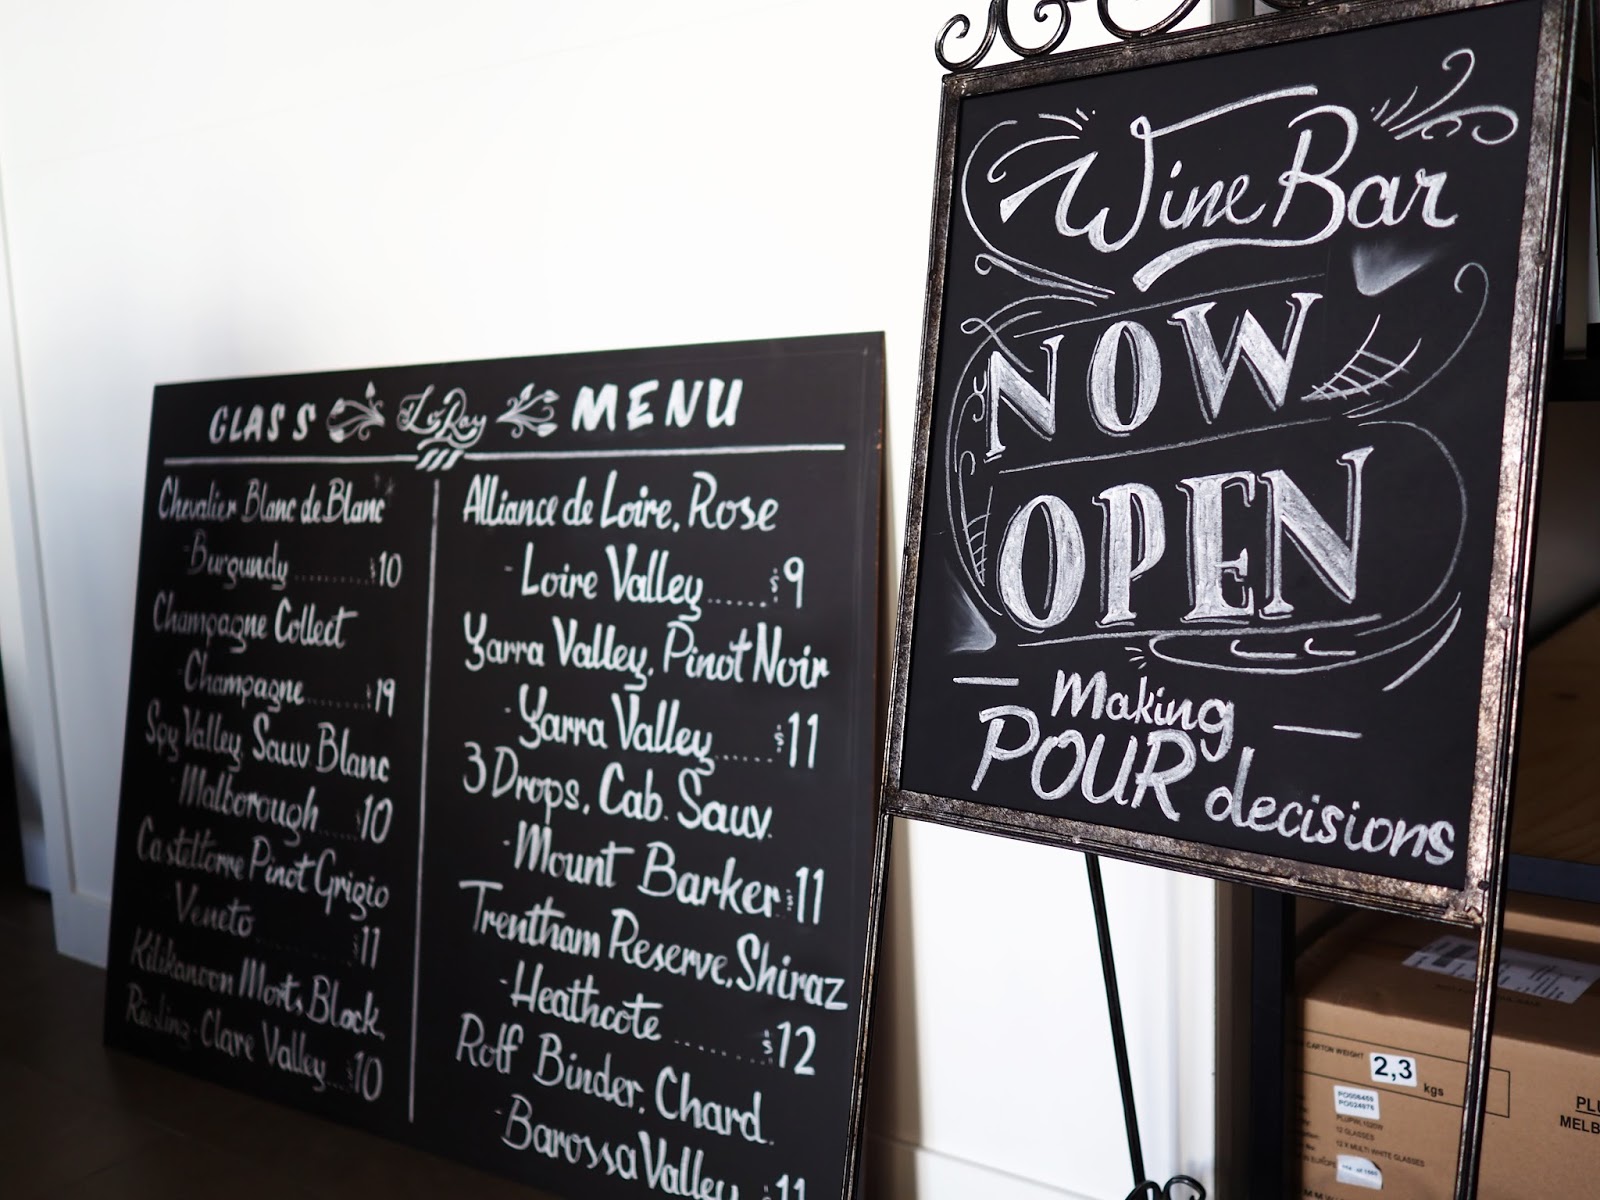 GLASS LoRay MENU
Chevalier Blanc de Blanc
- Burgundy ........ $10
Champagne Collect
- Champagne ....... $19
Spy Valley, Sauv. Blanc
- Malborough .... $10
Casteltorre Pinot Grigio
- Veneto .......... $11
Kilikanoon Mort's Block,
Riesling - Clare Valley ... $10
Alliance de Loire, Rose
- Loire Valley ...... $9
Yarra Valley, Pinot Noir
- Yarra Valley ..... $11
3 Drops, Cab. Sauv.
- Mount Barker $11
Trentham Reserve, Shiraz
- Heathcote ........ $12
Rolf Binder, Chard.
- Barossa Valley 11
Wine Bar
NOW
OPEN
Making
POUR decisions
CARTON WEIGHT 2,3 kgs
12 GLASSES
12 X MULTI WHITE GLASSES
MELB